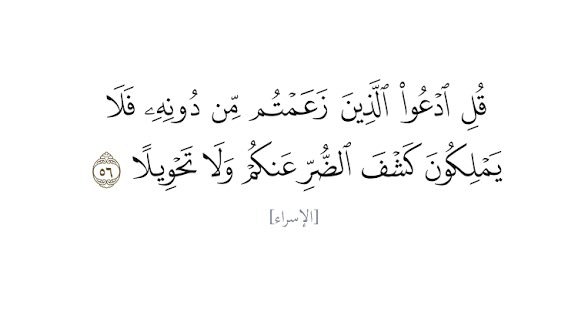 قُلِ ٱدْعُوا۟ ٱلَّذِينَ زَعَمْتُم مِّن دُونِهِۦ فَلَا
يَمْلِكُونَ كَشْفَ ٱلضُّرِّ عَنكُمْ وَلَا تَحْوِيلًا ٥٦
[الإسراء]